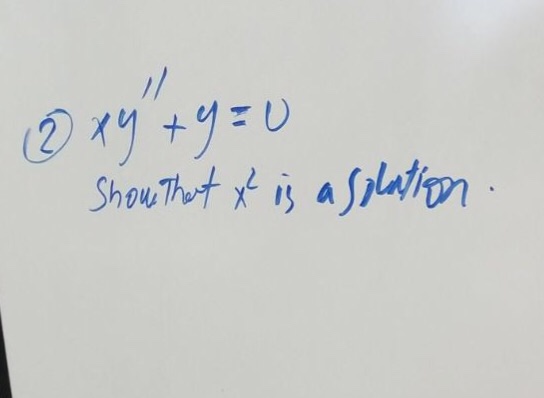 ② xy'' + y = 0
Show That x² is a solution.